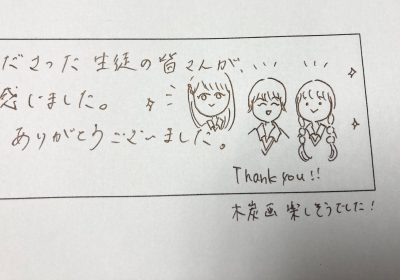 ださった生徒の皆さんが、
感じました。
ありがとうございました。
Thank you!!
木炭画 楽しそうでした!